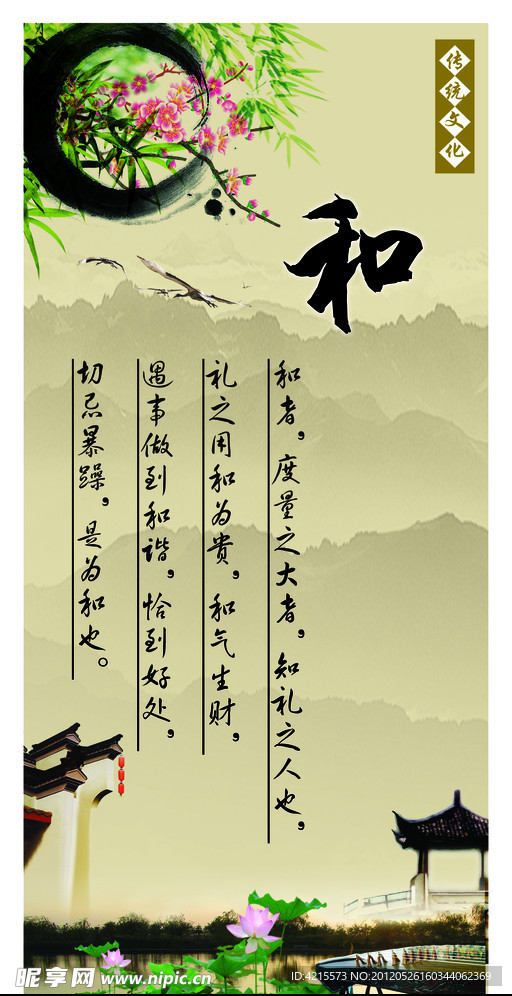 传统文化
和
和者，度量之大者，知礼之人也，
礼之用和为贵，和气生财，
遇事做到和谐，恰到好处，
切忌暴躁，是为和也。
昵享网 www.nipic.cn
ID:4215573 NO:20120526160344062369